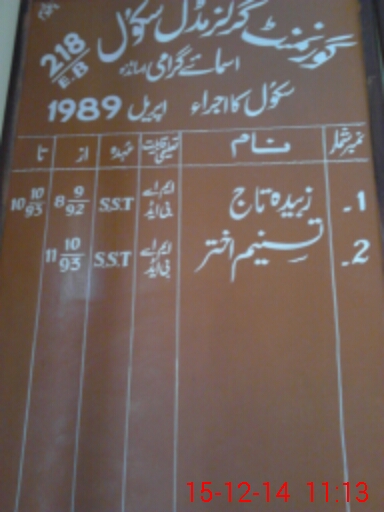 گورنمنٹ گرلز مڈل سکول 218/E.B
اسمائے گرامی اساتذہ
سکول کا اجراء اپریل 1989
نمبر شمار نام تعلیمی قابلیت عہدہ از تا
1- زبیدہ تاج ایم اے بی ایڈ S.S.T 8 9/92 10 10/93
2- تسنیم اختر ایم اے بی ایڈ S.S.T 11 10/93
15-12-14 11:13